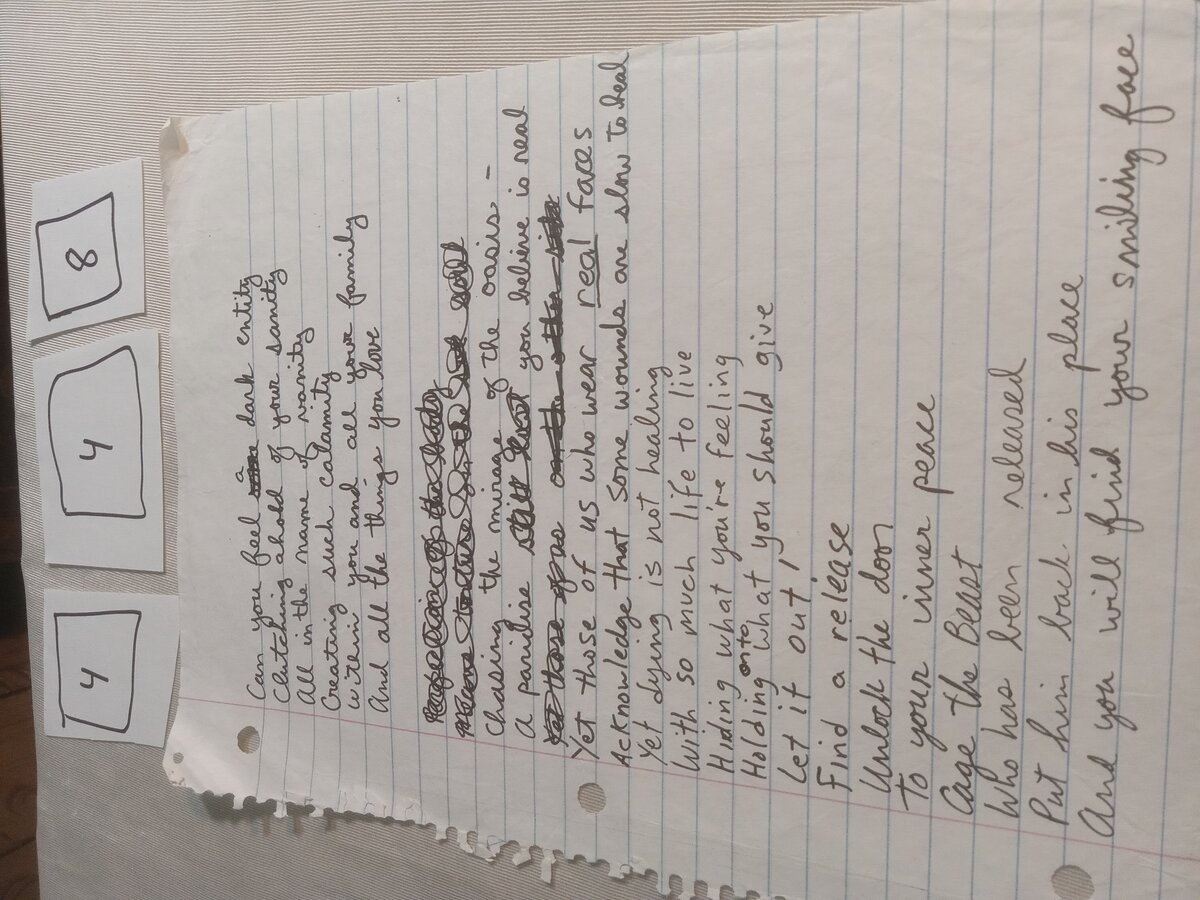 4
4
8
Can you feel a dark entity
Clutching ahold of your sanity
All in the name of vanity
Creating such calamity
within you and all your family
And all the things you love
Chasing the mirage of the oasis -
A paridise you believe is real
Yet those of us who wear real faces
Acknowledge that some wounds are slow to heal
Yet dying is not healing
With so much life to live
Hiding what you're feeling
Holding onto what you should give
Let it out!
Find a release
Unlock the door
To your inner peace
Cage the Beast
Who has been released
Put him back in his place
And you will find your smiling face